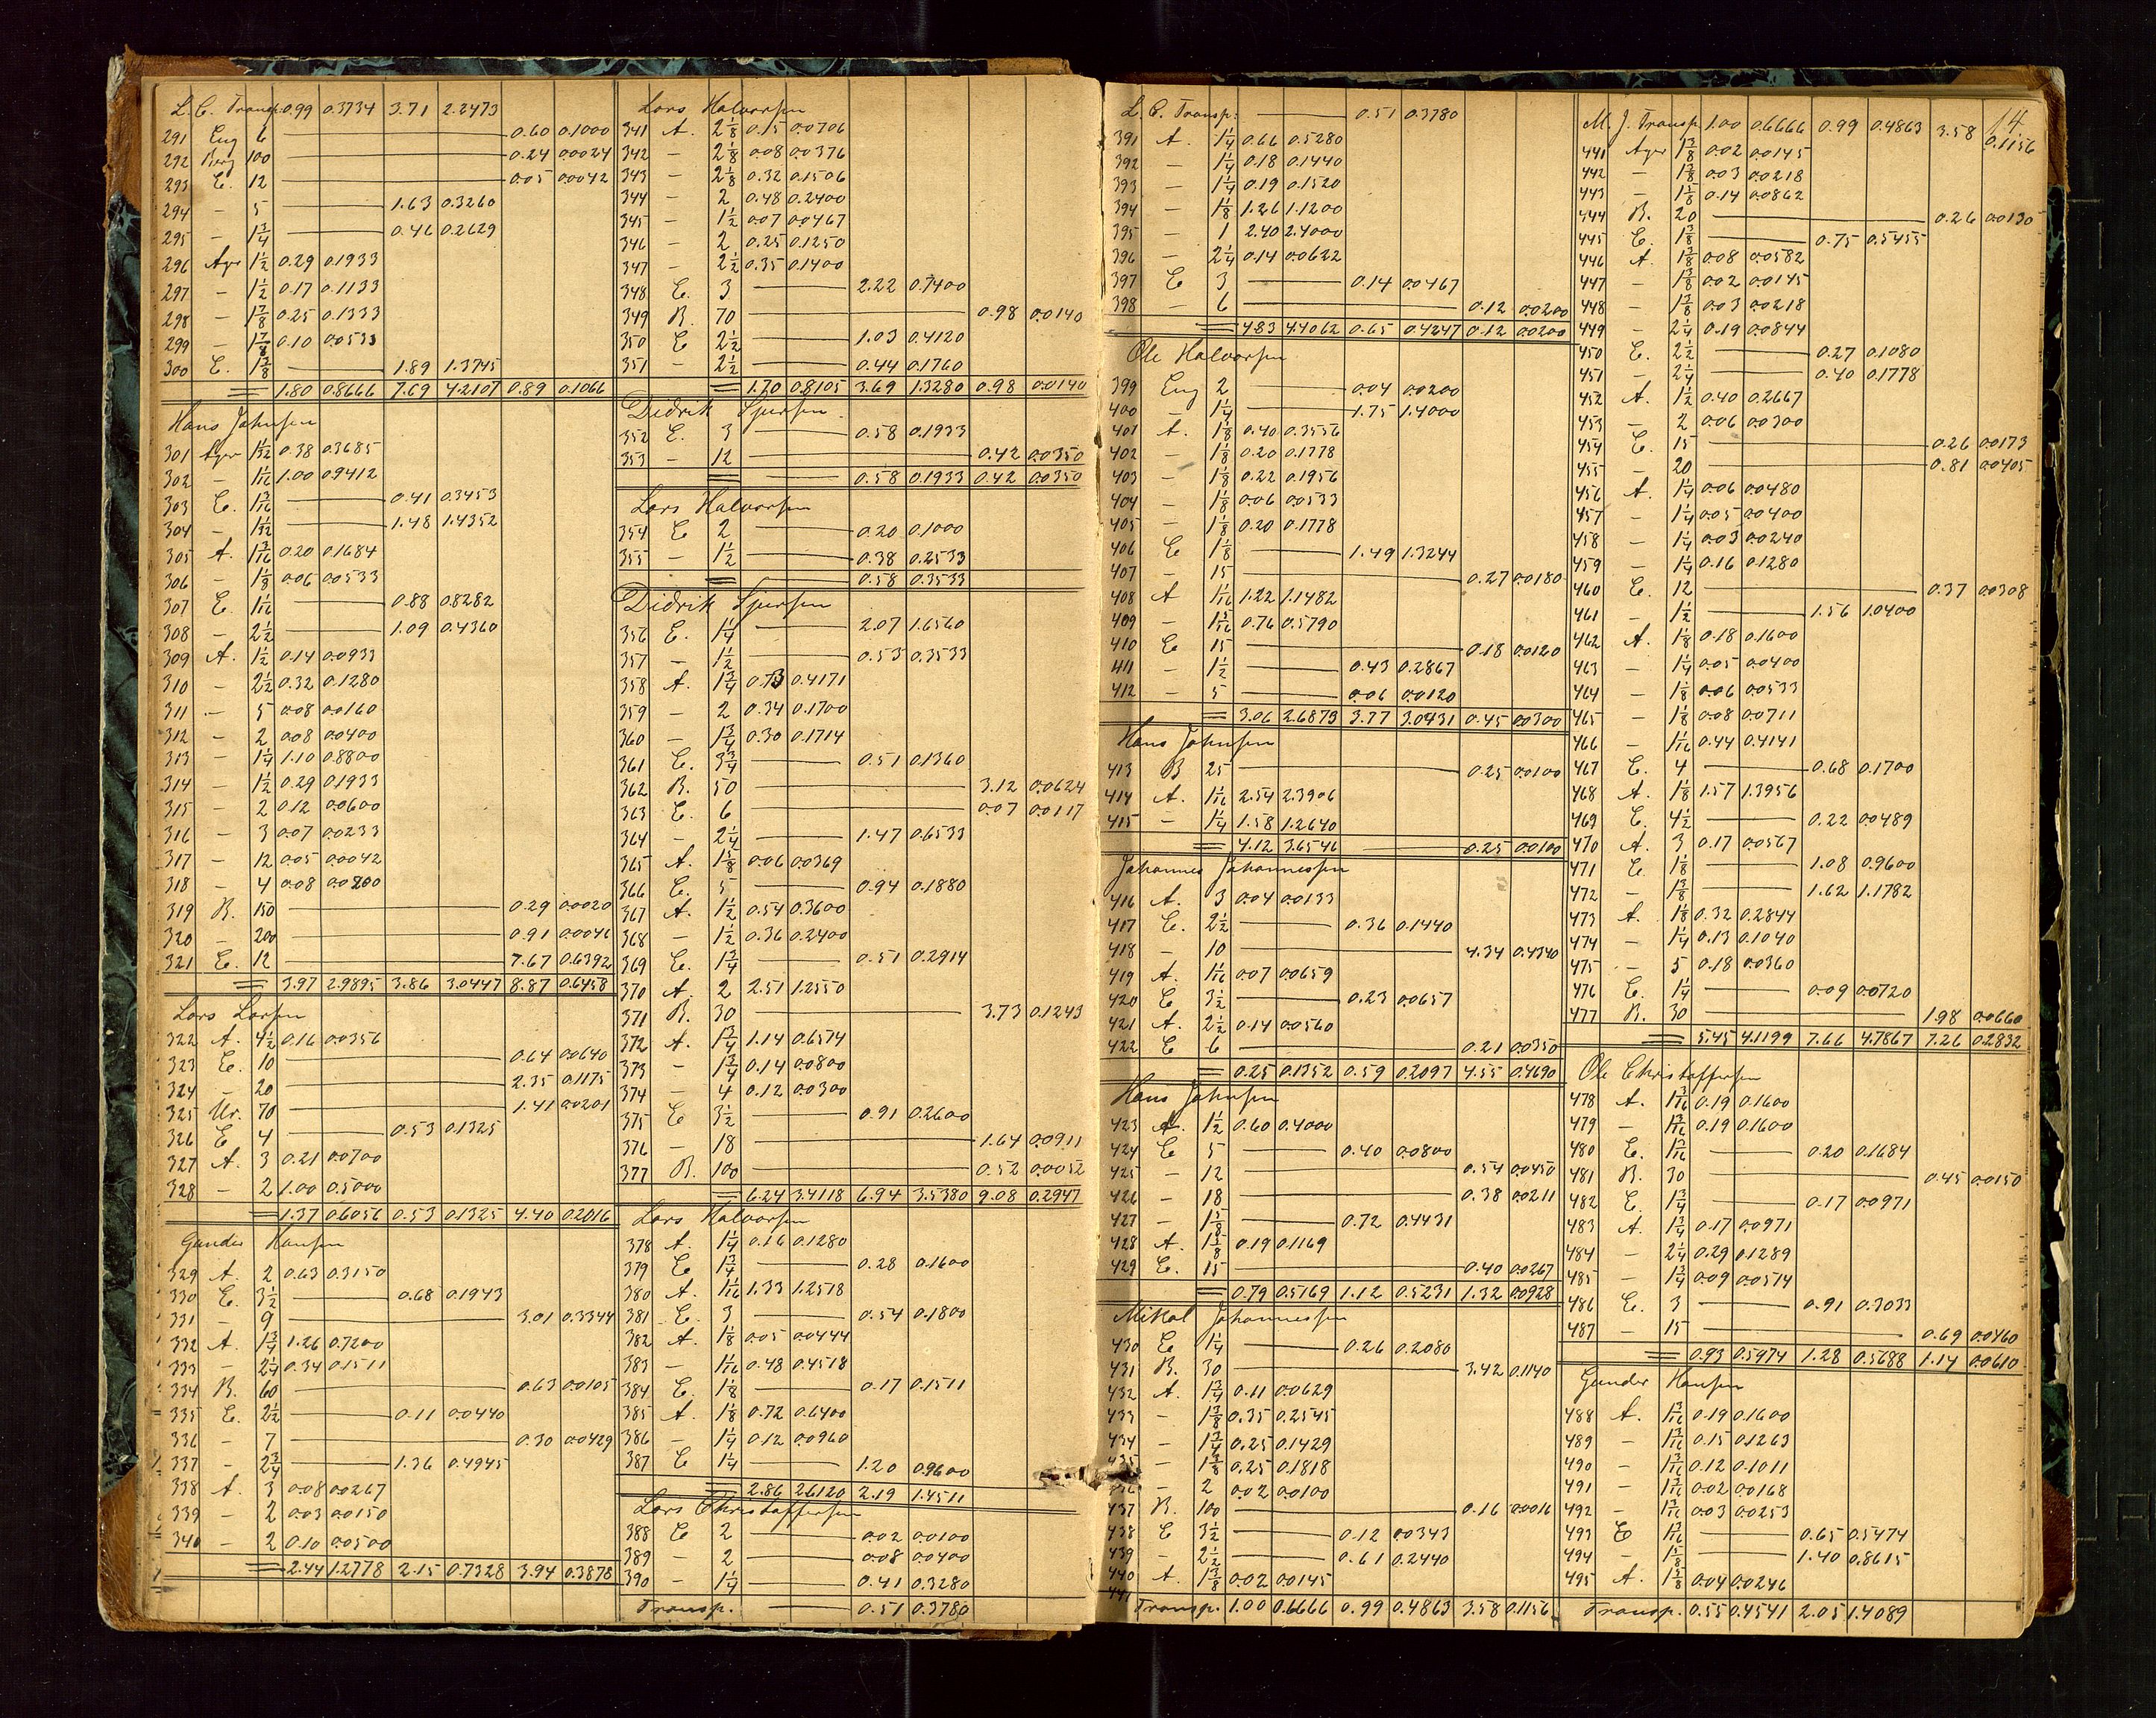 L. C. Transp. 0.99 0.3734 3.71 2.2473
291 Eng 6 0.60 0.1000
292 Berg 100 0.24 0.0024
293 E. 12 0.05 0.0042
294 - 5 1.63 0.3260
295 - 1 3/4 0.46 0.2629
296 Ager 1 1/2 0.29 0.1933
297 - 1 1/2 0.17 0.1133
298 - 1 7/8 0.25 0.1333
299 - 1 7/8 0.10 0.0533
300 E. 1 3/8 1.89 1.3745
= 1.80 0.8666 7.69 4.2107 0.89 0.1066
Hans Johnsen
301 Ager 1 1/32 0.38 0.3685
302 - 1 1/16 1.00 0.9412
303 E. 1 3/16 0.41 0.3453
304 - 1 1/32 1.48 1.4352
305 A. 1 3/16 0.20 0.1684
306 - 1 1/8 0.06 0.0533
307 E. 1 1/16 0.88 0.8282
308 - 2 1/2 1.09 0.4360
309 A. 1 1/2 0.14 0.0933
310 - 2 1/2 0.32 0.1280
311 - 5 0.08 0.0160
312 - 2 0.08 0.0400
313 - 1 1/4 1.10 0.8800
314 - 1 1/2 0.29 0.1933
315 - 2 0.12 0.0600
316 - 3 0.07 0.0233
317 - 12 0.05 0.0042
318 - 4 0.08 0.0200
319 B. 150 0.29 0.0020
320 - 200 0.91 0.0046
321 E. 12 7.67 0.6392
= 3.97 2.9895 3.86 3.0447 8.87 0.6458
Lars Larsen
322 A. 4 1/2 0.16 0.0356
323 E. 10 0.64 0.0640
324 - 20 2.35 0.1175
325 Ur. 70 1.41 0.0201
326 E 4 0.53 0.1325
327 A. 3 0.21 0.0700
328 - 2 1.00 0.5000
= 1.37 0.6056 0.53 0.1325 4.40 0.2016
Gunder Hansen
329 A. 2 0.63 0.3150
330 E. 3 1/2 0.68 0.1943
331 - 9 3.01 0.3344
332 A. 1 3/4 1.26 0.7200
333 - 2 1/4 0.34 0.1511
334 B. 60 0.63 0.0105
335 E. 2 1/2 0.11 0.0440
336 - 7 0.30 0.0429
337 - 2 3/4 1.36 0.4945
338 A. 3 0.08 0.0267
339 - 2 0.03 0.0150
340 - 2 0.10 0.0500
= 2.44 1.2778 2.15 0.7328 3.94 0.3878
Lars Halvorsen
341 A. 2 1/8 0.15 0.0706
342 - 2 1/8 0.08 0.0376
343 - 2 1/8 0.32 0.1506
344 - 2 0.48 0.2400
345 - 1 1/2 0.07 0.0467
346 - 2 0.25 0.1250
347 - 2 1/2 0.35 0.1400
348 E. 3 2.22 0.7400
349 B. 70 0.98 0.0140
350 E 2 1/2 1.03 0.4120
351 - 2 1/2 0.44 0.1760
= 1.70 0.8105 3.69 1.3280 0.98 0.0140
Didrik Sjursen.
352 E. 3 0.58 0.1933
353 - 12 0.42 0.0350
= 0.58 0.1933 0.42 0.0350
Lars Halvorsen
354 E 2 0.20 0.1000
355 - 1 1/2 0.38 0.2533
= 0.58 0.3533
Didrik Sjursen
356 E. 1 1/4 2.07 1.6560
357 - 1 1/2 0.53 0.3533
358 A. 1 3/4 0.73 0.4171
359 - 2 0.34 0.1700
360 - 1 3/4 0.30 0.1714
361 E. 3 3/4 0.51 0.1360
362 B. 50 3.12 0.0624
363 E. 6 0.07 0.0117
364 - 2 1/4 1.47 0.6533
365 A. 1 5/8 0.06 0.0369
366 E. 5 0.94 0.1880
367 A. 1 1/2 0.54 0.3600
368 - 1 1/2 0.36 0.2400
369 E. 1 3/4 0.51 0.2914
370 A. 2 2.51 1.2550
371 B. 30 3.73 0.1243
372 A. 1 3/4 1.14 0.6514
373 - 1 3/4 0.14 0.0800
374 - 4 0.12 0.0300
375 E 3 1/2 0.91 0.2600
376 - 18 1.64 0.0911
377 B. 100 0.52 0.0052
= 6.24 3.4118 6.94 3.5380 9.08 0.2947
Lars Halvorsen
378 A. 1 1/4 0.16 0.1280
379 E 1 3/4 0.28 0.1600
380 A. 1 1/16 1.33 1.2518
381 E. 3 0.54 0.1800
382 A. 1 1/8 0.05 0.0444
383 - 1 1/16 0.48 0.4518
384 E. 1 1/8 0.17 0.1511
385 A. 1 1/8 0.72 0.6400
386 - 1 1/4 0.12 0.0960
387 E 1 1/4 1.20 0.9600
= 2.86 2.6120 2.19 1.4511
Lars Christoffersen
388 E 2 0.02 0.0100
389 - 2 0.08 0.0400
390 - 1 1/4 0.41 0.3280
Transp. 0.51 0.3780
L. C. Transp. 0.51 0.3780
391 A. 1 1/4 0.66 0.5280
392 - 1 1/4 0.18 0.1440
393 - 1 1/4 0.19 0.1520
394 - 1 1/8 1.26 1.1200
395 - 1 2.40 2.4000
396 - 2 1/4 0.14 0.0622
397 E 3 0.14 0.0467
398 - 6 0.12 0.0200
= 4.83 4.4062 0.65 0.4247 0.12 0.0200
Ole Halvorsen
399 Eng 2 0.04 0.0200
400 - 1 1/4 1.75 1.4000
401 A. 1 1/8 0.40 0.3556
402 - 1 1/8 0.20 0.1778
403 - 1 1/8 0.22 0.1956
404 - 1 1/8 0.06 0.0533
405 - 1 1/8 0.20 0.1778
406 E 1 1/8 1.49 1.3244
407 - 15 0.27 0.0180
408 A 1 1/16 1.22 1.1482
409 - 1 5/16 0.76 0.5790
410 E 15 0.18 0.0120
411 - 1 1/2 0.43 0.2867
412 - 5 0.06 0.0120
= 3.06 2.6873 3.77 3.0431 0.45 0.0300
Hans Johnsen
413 B 25 0.25 0.0100
414 A. 1 1/16 2.54 2.3906
415 - 1 1/4 1.58 1.2640
= 4.12 3.6546 0.25 0.0100
Johannes Johannessen
416 A. 3 0.04 0.0133
417 E. 2 1/2 0.36 0.1440
418 - 10 4.34 0.4340
419 A. 1 1/16 0.07 0.0659
420 E 3 1/2 0.23 0.0657
421 A. 2 1/2 0.14 0.0560
422 E 6 0.21 0.0350
= 0.25 0.1352 0.59 0.2097 4.55 0.4690
Hans Johnsen
423 A. 1 1/2 0.60 0.4000
424 E 5 0.40 0.0800
425 - 12 0.54 0.0450
426 - 18 0.38 0.0211
427 - 1 5/8 0.72 0.4431
428 A. 1 5/8 0.19 0.1169
429 E. 15 0.40 0.0267
= 0.79 0.5169 1.12 0.5231 1.32 0.0928
Mikal Johannessen
430 E 1 1/4 0.26 0.2080
431 B. 30 3.42 0.1140
432 A. 1 3/4 0.11 0.0629
433 - 1 3/8 0.35 0.2545
434 - 1 3/4 0.25 0.1429
435 - 1 3/8 0.25 0.1818
436 - 2 0.02 0.0100
437 B. 100 0.16 0.0016
438 E 3 1/2 0.12 0.0343
439 - 2 1/2 0.61 0.2440
440 A. 1 3/8 0.02 0.0145
441 Transp. 1.00 0.6666 0.99 0.4863 3.58 0.1156
14
M. J. Transp. 1.00 0.6666 0.99 0.4863 3.58 0.1156
441 Ager 1 3/8 0.02 0.0145
442 - 1 3/8 0.03 0.0218
443 - 1 5/8 0.14 0.0862
444 B. 20 0.26 0.0130
445 E. 1 3/8 0.75 0.5455
446 A. 1 3/8 0.08 0.0582
447 - 1 3/8 0.02 0.0145
448 - 1 3/8 0.03 0.0218
449 - 2 1/4 0.19 0.0844
450 E. 2 1/2 0.27 0.1080
451 - 2 1/4 0.40 0.1778
452 A. 1 1/2 0.40 0.2667
453 - 2 0.06 0.0300
454 E. 15 0.26 0.0173
455 - 20 0.81 0.0405
456 A. 1 1/4 0.06 0.0480
457 - 1 1/4 0.05 0.0400
458 - 1 1/4 0.03 0.0240
459 - 1 1/4 0.16 0.1280
460 E. 12 0.37 0.0308
461 - 1 1/2 1.56 1.0400
462 A. 1 1/8 0.18 0.1600
463 - 1 1/4 0.05 0.0400
464 - 1 1/8 0.06 0.0533
465 - 1 1/8 0.08 0.0711
466 - 1 1/16 0.44 0.4141
467 E. 4 0.68 0.1700
468 A. 1 1/8 1.57 1.3956
469 E. 4 1/2 0.22 0.0489
470 A. 3 0.17 0.0567
471 E. 1 1/8 1.08 0.9600
472 - 1 3/8 1.62 1.1782
473 A. 1 1/8 0.32 0.2844
474 - 1 1/4 0.13 0.1040
475 - 5 0.18 0.0360
476 E. 1 1/4 0.09 0.0720
477 B. 30 1.98 0.0660
= 5.45 4.1199 7.66 4.7867 7.26 0.2832
Ole Christoffersen
478 A. 1 3/16 0.19 0.1600
479 - 1 3/16 0.19 0.1600
480 E. 1 3/16 0.20 0.1684
481 B. 30 0.45 0.0150
482 E. 1 3/4 0.17 0.0971
483 A. 1 3/4 0.17 0.0971
484 - 2 1/4 0.29 0.1289
485 - 1 3/4 0.09 0.0514
486 E. 3 0.91 0.3033
487 - 15 0.69 0.0460
= 0.93 0.5974 1.28 0.5688 1.14 0.0610
Gunder Hansen
488 A. 1 3/16 0.19 0.1600
489 - 1 3/16 0.15 0.1263
490 - 1 3/16 0.12 0.1011
491 - 1 3/16 0.02 0.0168
492 - 1 3/16 0.03 0.0253
493 E 1 3/16 0.65 0.5474
494 - 1 5/8 1.40 0.8615
495 A. 1 5/8 0.04 0.0246
Transp. 0.55 0.4541 2.05 1.4089